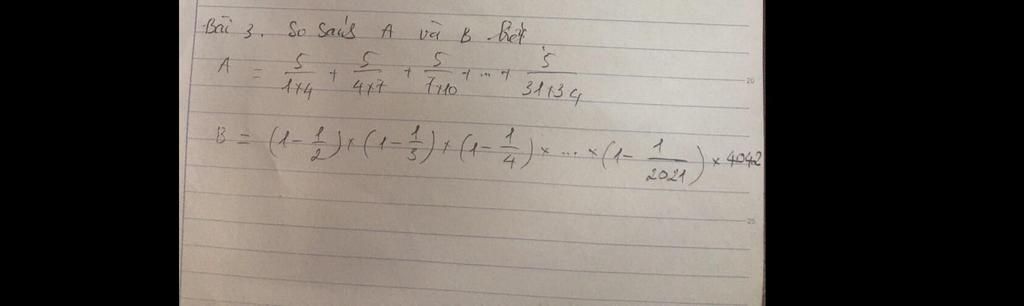 Bài 3. So sánh A và B biết
A = 5/1×4 + 5/4×7 + 5/7×10 + ... + 5/31×34
B = (1 - 1/2) × (1 - 1/3) × (1 - 1/4) × ... × (1 - 1/2021) × 4042
20
25